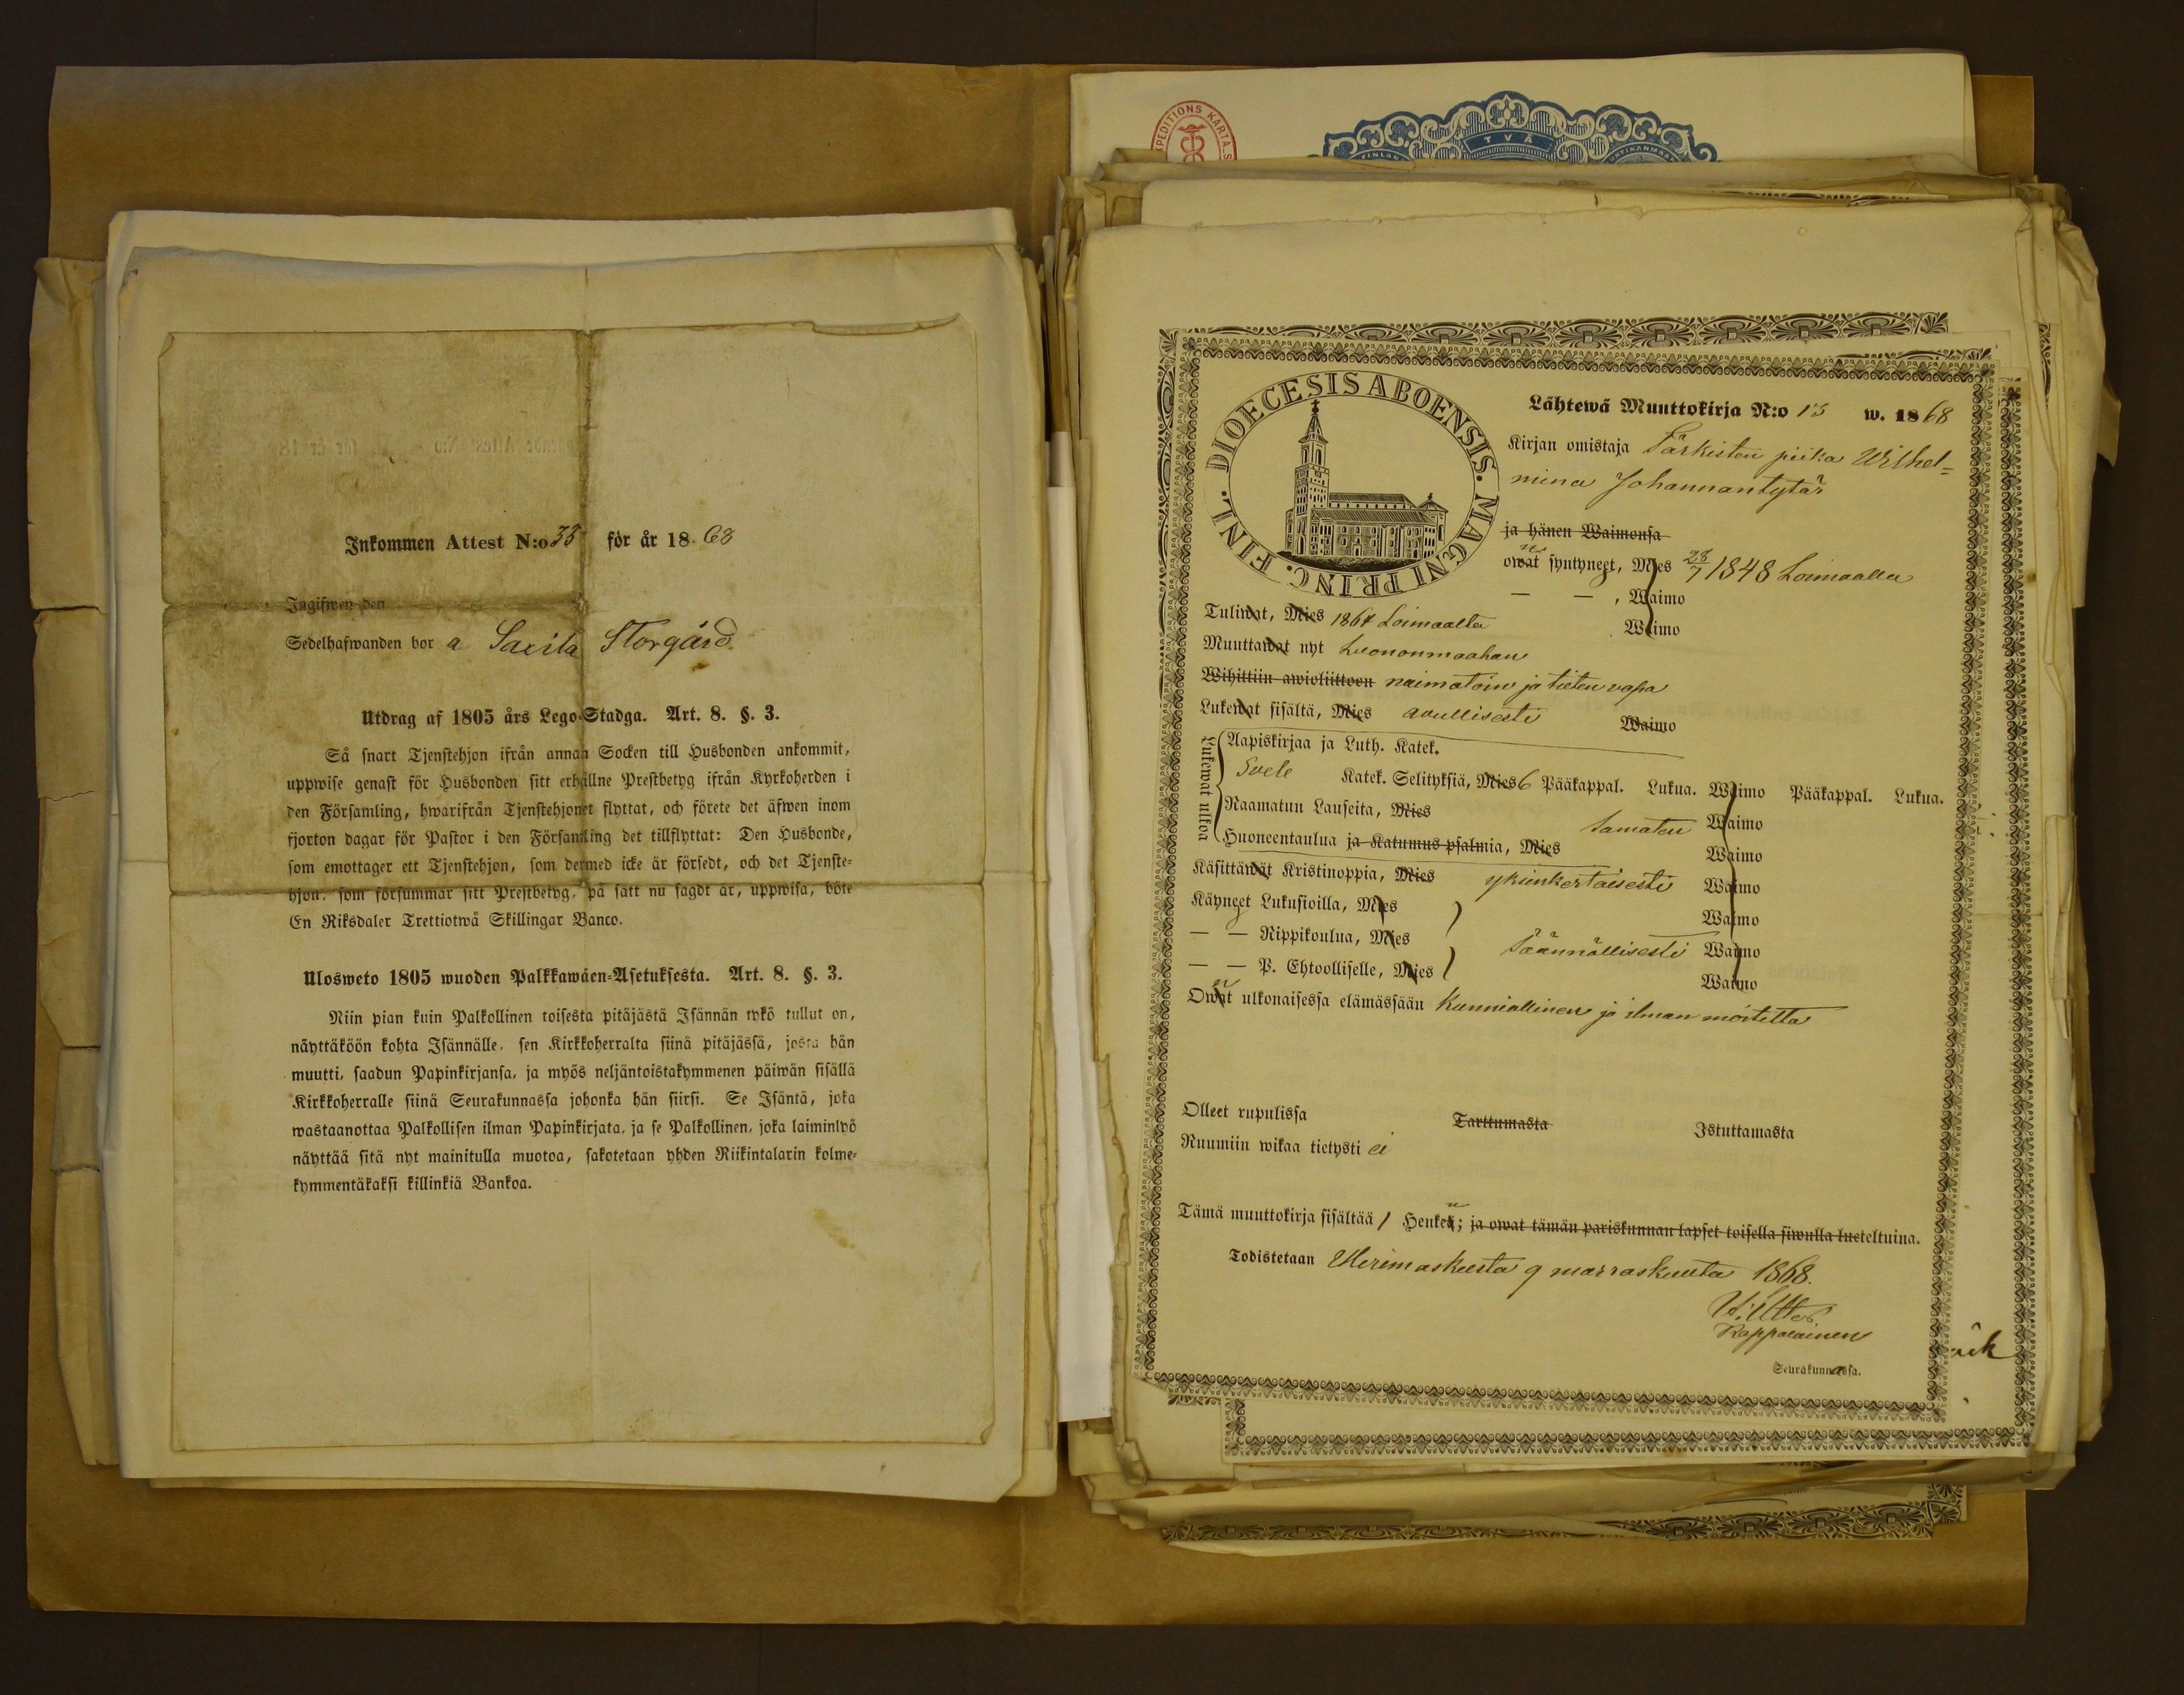 Inkommen Attest N:o 35 för år 1868
Ingifwen den
Sedelhafwanden bor a Saxila Storgård.
Utdrag af 1805 års Lego-Stadga. Art. 8. §. 3.
Så snart Tjenstehjon ifrån annan Socken till Husbonden ankommit,
uppwise genast för Husbonden sitt erhållne Prestbetyg ifrån Kyrkoherden i
den Församling, hwarifrån Tjenstehjonet flyttat, och förete det äfwen inom
fjorton dagar för Pastor i den Församling det tillflyttat: Den Husbonde,
som emottager ett Tjenstehjon, som dermed icke är försedt, och det Tjenste-
hjon, som försummar sitt Prestbetyg, på sätt nu sagdt är, uppwisa, böte
En Riksdaler Trettiotwå Skillingar Banco.
Ulosweto 1805 wuoden Palkkawäen-Asetuksesta. Art. 8. §. 3.
Niin pian kuin Palkollinen toisesta pitäjästä Isännän tykö tullut on,
näyttäköön kohta Isännälle, sen Kirkkoherralta siinä pitäjässä, josta hän
muutti, saadun Papinkirjansa, ja myös neljäntoistakymmenen päiwän sisällä
Kirkkoherralle siinä Seurakunnassa johonka hän siirsi. Se Isäntä, joka
wastaanottaa Palkollisen ilman Papinkirjata, ja se Palkollinen, joka laiminlyö
näyttää sitä nyt mainitulla muotoa, sakotetaan yhden Riikintalarin kolme-
kymmentäkaksi killinkiä Bankoa.
EXPEDITIONS KARTA.S
TVÅ
DIOECESIS ABOENSIS. MAGNI PRINC. FINL.
Lähtewä Muuttokirja N:o 13 w. 1868
Kirjan omistaja Särkisten piika Wilhel-
mina Johannantytär
ja hänen Waimonsa
owat syntyneet, Mies 28/7 1848 Loimaalla
— — , Waimo
Tuliwat, Mies 1864 Loimaalta Waimo
Muuttawat nyt Luononmaahan
Wihittiin awioliittoon naimatoin ja tieten vapa
Lukewat sisältä, Mies avullisesti Waimo
Lukewat ulkoa
Aapiskirjaa ja Luth. Katek.
Svele Katek. Selityksiä, Mies 6 Pääkappal. Lukua. Waimo Pääkappal. Lukua.
Raamatun Lauseita, Mies Waimo
Huoneentaulua ja Katumus psalmia, Mies Samaten Waimo
Käsittäwät Kristinoppia, Mies yksinkertaisesti Waimo
Käyneet Lukusioilla, Mies Waimo
— — Rippikoulua, Mies Säännöllisesti Waimo
— — P. Ehtoolliselle, Mies Waimo
Owat ulkonaisessa elämässään Kunniallinen ja ilman moitetta
Olleet rupulissa Tarttumasta Istuttamasta
Ruumiin wikaa tietysti ei
Tämä muuttokirja sisältää 1 Henken; ja owat tämän pariskunnan lapset toisella siwulla lueteltuina.
Todistetaan Merimaskusta 9 marraskuuta 1868.
Kappalainen
Seurakunnassa.